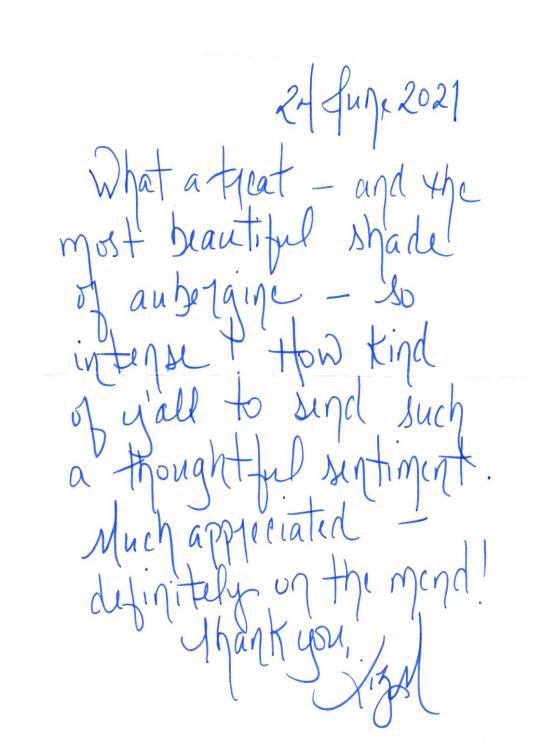 24 June 2021
What a treat – and the
most beautiful shade
of aubergine – so
intense! How kind
of y'all to send such
a thoughtful sentiment.
Much appreciated –
definitely on the mend!
Thank you,